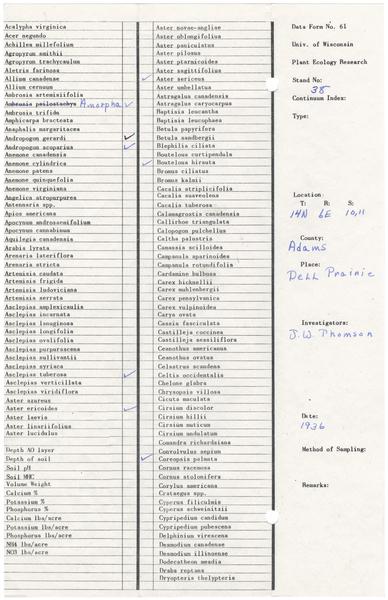 Acalypha virginica
Acer negundo
Achillea millefolium
Agropyron smithii
Agropyron trachycaulum
Aletris farinosa
Allium canadense
Allium cernuum
Ambrosia artemisiifolia
Ambrosia psilostachya Amorpha ✓
Ambrosia trifida
Amphicarpa bracteata
Anaphalis margaritacea
Andropogon gerardi ✓
Andropogon scoparius ✓
Anemone canadensis
Anemone cylindrica
Anemone patens
Anemone quinquefolia
Anemone virginiana
Angelica atropurpurea
Antennaria spp.
Apios americana
Apocynum androsaemifolium
Apocynum cannabinum
Aquilegia canadensis
Arabis lyrata
Arenaria lateriflora
Arenaria stricta
Artemisia caudata
Artemisia frigida
Artemisia ludoviciana
Artemisia serrata
Asclepias amplexicaulis
Asclepias incarnata
Asclepias lanuginosa
Asclepias longifolia
Asclepias ovalifolia
Asclepias purpurascens
Asclepias sullivantii
Asclepias syriaca
Asclepias tuberosa ✓
Asclepias verticillata
Asclepias viridiflora
Aster azureus
Aster ericoides ✓
Aster laevis
Aster linariifolius
Aster lucidulus
Depth AO layer
Depth of soil
Soil pH
Soil WHC
Volume Weight
Calcium %
Potassium %
Phosphorus %
Calcium lbs/acre
Potassium lbs/acre
Phosphorus lbs/acre
NH4 lbs/acre
NO3 lbs/acre
Aster novae-angliae
Aster oblongifolius
Aster paniculatus
Aster pilosus
Aster ptarmicoides
Aster sagittifolius
✓ Aster sericeus
Aster umbellatus
Astragalus canadensis
Astragalus caryocarpus
Baptisia leucantha
Baptisia leucophaea
Betula papyrifera
Betula sandbergii
Blephilia ciliata
Bouteloua curtipendula
✓ Bouteloua hirsuta
Bromus ciliatus
Bromus kalmii
Cacalia atriplicifolia
Cacalia suaveolens
Cacalia tuberosa
Calamagrostis canadensis
Callirhoe triangulata
Calopogon pulchellus
Caltha palustris
Camassia scilloides
Campanula aparinoides
Campanula rotundifolia
Cardamine bulbosa
Carex bicknellii
Carex muhlenbergii
Carex pensylvanica
Carex vulpinoidea
Carya ovata
Cassia fasciculata
Castilleja coccinea
Castilleja sessiliflora
Ceanothus americanus
Ceanothus ovatus
Celastrus scandens
Celtis occidentalis
Chelone glabra
Chrysopsis villosa
Cicuta maculata
Cirsium discolor
Cirsium hillii
Cirsium muticum
Cirsium undulatum
Comandra richardiana
Convolvulus sepium
✓ Coreopsis palmata
Cornus racemosa
Cornus stolonifera
Corylus americana
Crataegus spp.
Cyperus filiculmis
Cyperus schweinitzii
Cypripedium candidum
Cypripedium pubescens
Delphinium virescens
Desmodium canadense
Desmodium illinoense
Dodecatheon meadia
Draba reptans
Dryopteris thelypteris
Data Form No. 61
Univ. of Wisconsin
Plant Ecology Research
Stand No.
38
Continuum Index:
Type:
Location:
T: R: S:
14N 6E 10,11
County:
Adams
Place:
Dell Prairie
Investigators:
J.W. Thomson
Date:
1936
Method of Sampling:
Remarks: